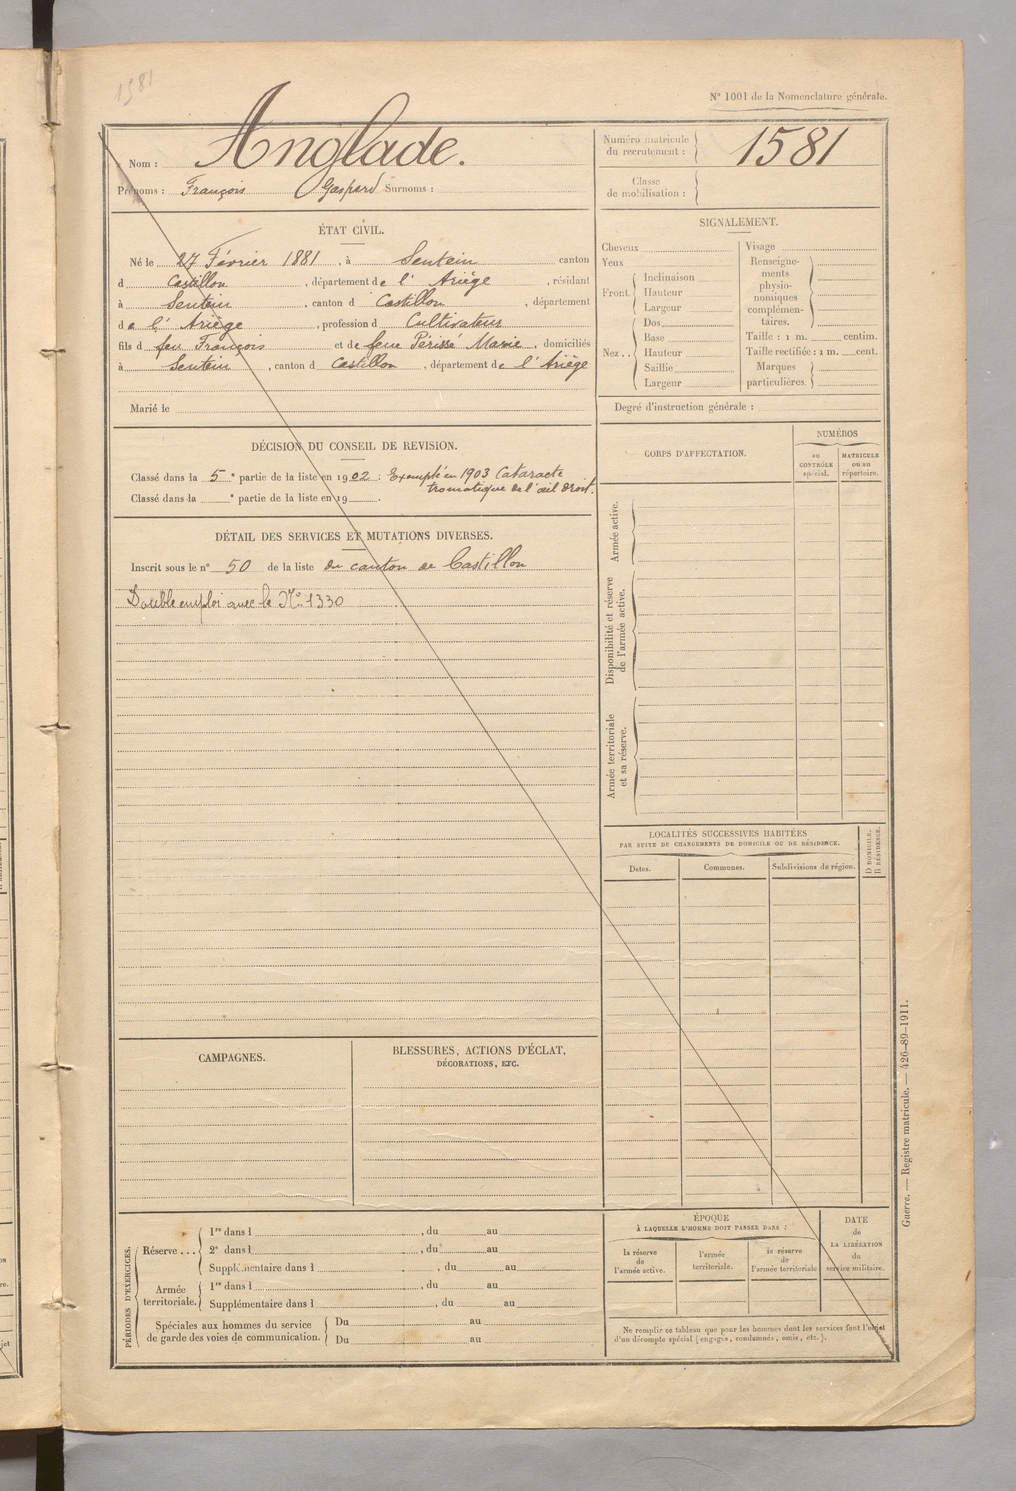 1581
N° 1001 de la Nomenclature générale.
Nom : Anglade.
Prénoms : François Gaspard Surnoms :
Numéro matricule du recrutement : 1581
Classe de mobilisation :
ÉTAT CIVIL.
Né le 27 Février 1881, à Sentein canton
d Castillon, département de l'Ariège, résidant
à Sentein, canton d Castillon, département
de l'Ariège, profession d Cultivateur
fils d feu François et de feue Périssé Marie, domiciliés
à Sentein, canton d Castillon, département de l'Ariège
Marié le
SIGNALEMENT.
Cheveux
Yeux
Front.
Inclinaison
Hauteur
Largeur
Nez..
Dos
Base
Hauteur
Saillie
Largeur
Visage
Renseigne-
ments
physio-
nomiques
complémen-
taires.
Taille : 1 m. centim.
Taille rectifiée : 1 m. cent.
Marques
particulières.
Degré d'instruction générale :
DÉCISION DU CONSEIL DE REVISION.
Classé dans la 5e partie de la liste en 1902 : Exempté en 1903 Cataracte
tromatique de l'œil droit.
Classé dans la e partie de la liste en 19 .
DÉTAIL DES SERVICES ET MUTATIONS DIVERSES.
Inscrit sous le n° 50 de la liste du canton de Castillon
Double emploi avec le N° 1330
CORPS D'AFFECTATION.
NUMÉROS
au
CONTRÔLE
spécial.
MATRICULE
ou au
répertoire.
Armée active.
Disponibilité et réserve
de l'armée active.
Armée territoriale
et sa réserve.
LOCALITÉS SUCCESSIVES HABITÉES
PAR SUITE DE CHANGEMENTS DE DOMICILE OU DE RÉSIDENCE.
Dates.
Communes.
Subdivisions de région.
D. DOMICILE.
R. RÉSIDENCE.
CAMPAGNES.
BLESSURES, ACTIONS D'ÉCLAT,
DÉCORATIONS, ETC.
PÉRIODES D'EXERCICES.
Réserve...
1re dans l , du au
2e dans l , du au
Supplémentaire dans l , du au
Armée
territoriale.
1re dans l , du au
Supplémentaire dans l , du au
Spéciales aux hommes du service
de garde des voies de communication.
Du au
Du au
ÉPOQUE
À LAQUELLE L'HOMME DOIT PASSER DANS :
la réserve
de
l'armée active.
l'armée
territoriale.
la réserve
de
l'armée territoriale
DATE
de
LA LIBÉRATION
du
service militaire.
Ne remplir ce tableau que pour les hommes dont les services font l'objet
d'un décompte spécial (engagés, condamnés, omis, etc.).
Guerre. — Registre matricule. — 426-89-1911.